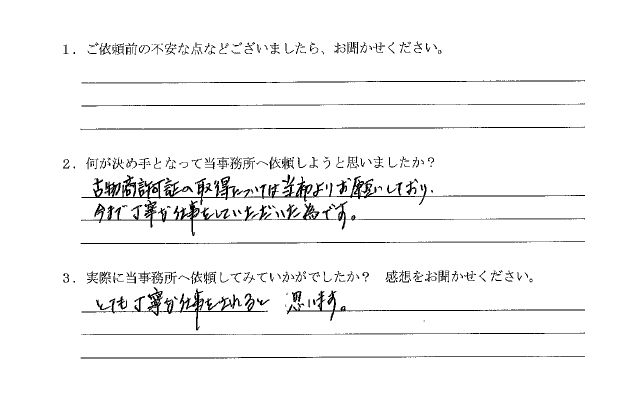 1．ご依頼前の不安な点などございましたら、お聞かせください。
2．何が決め手となって当事務所へ依頼しようと思いましたか？
古物商許可証の取得については当初よりお願いしており、
今まで丁寧な仕事をしていただいた為です。
3．実際に当事務所へ依頼してみていかがでしたか？　感想をお聞かせください。
とても丁寧な仕事をされると 思います。